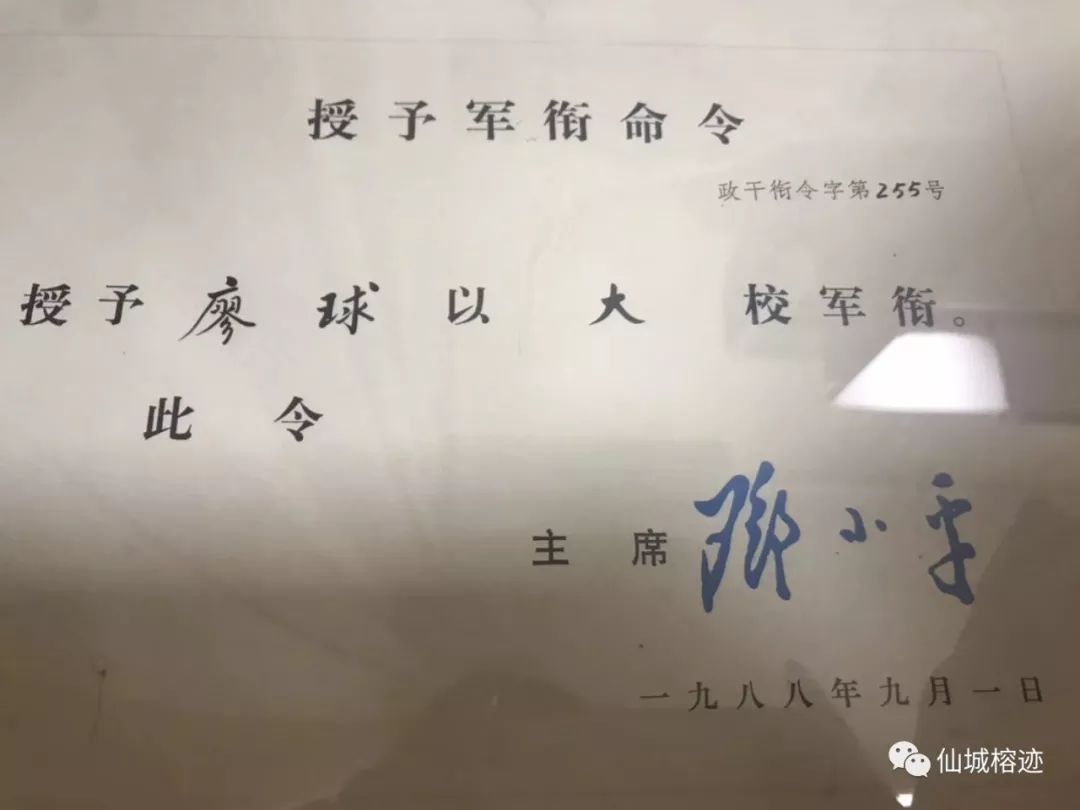 授予军衔命令
政干衔令字第255号
授予廖球以大校军衔。
此令
主席 邓小平
一九八八年九月一日
仙城榕迹